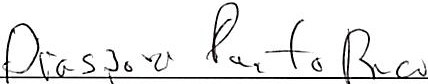 Diaspora Puerto Rico